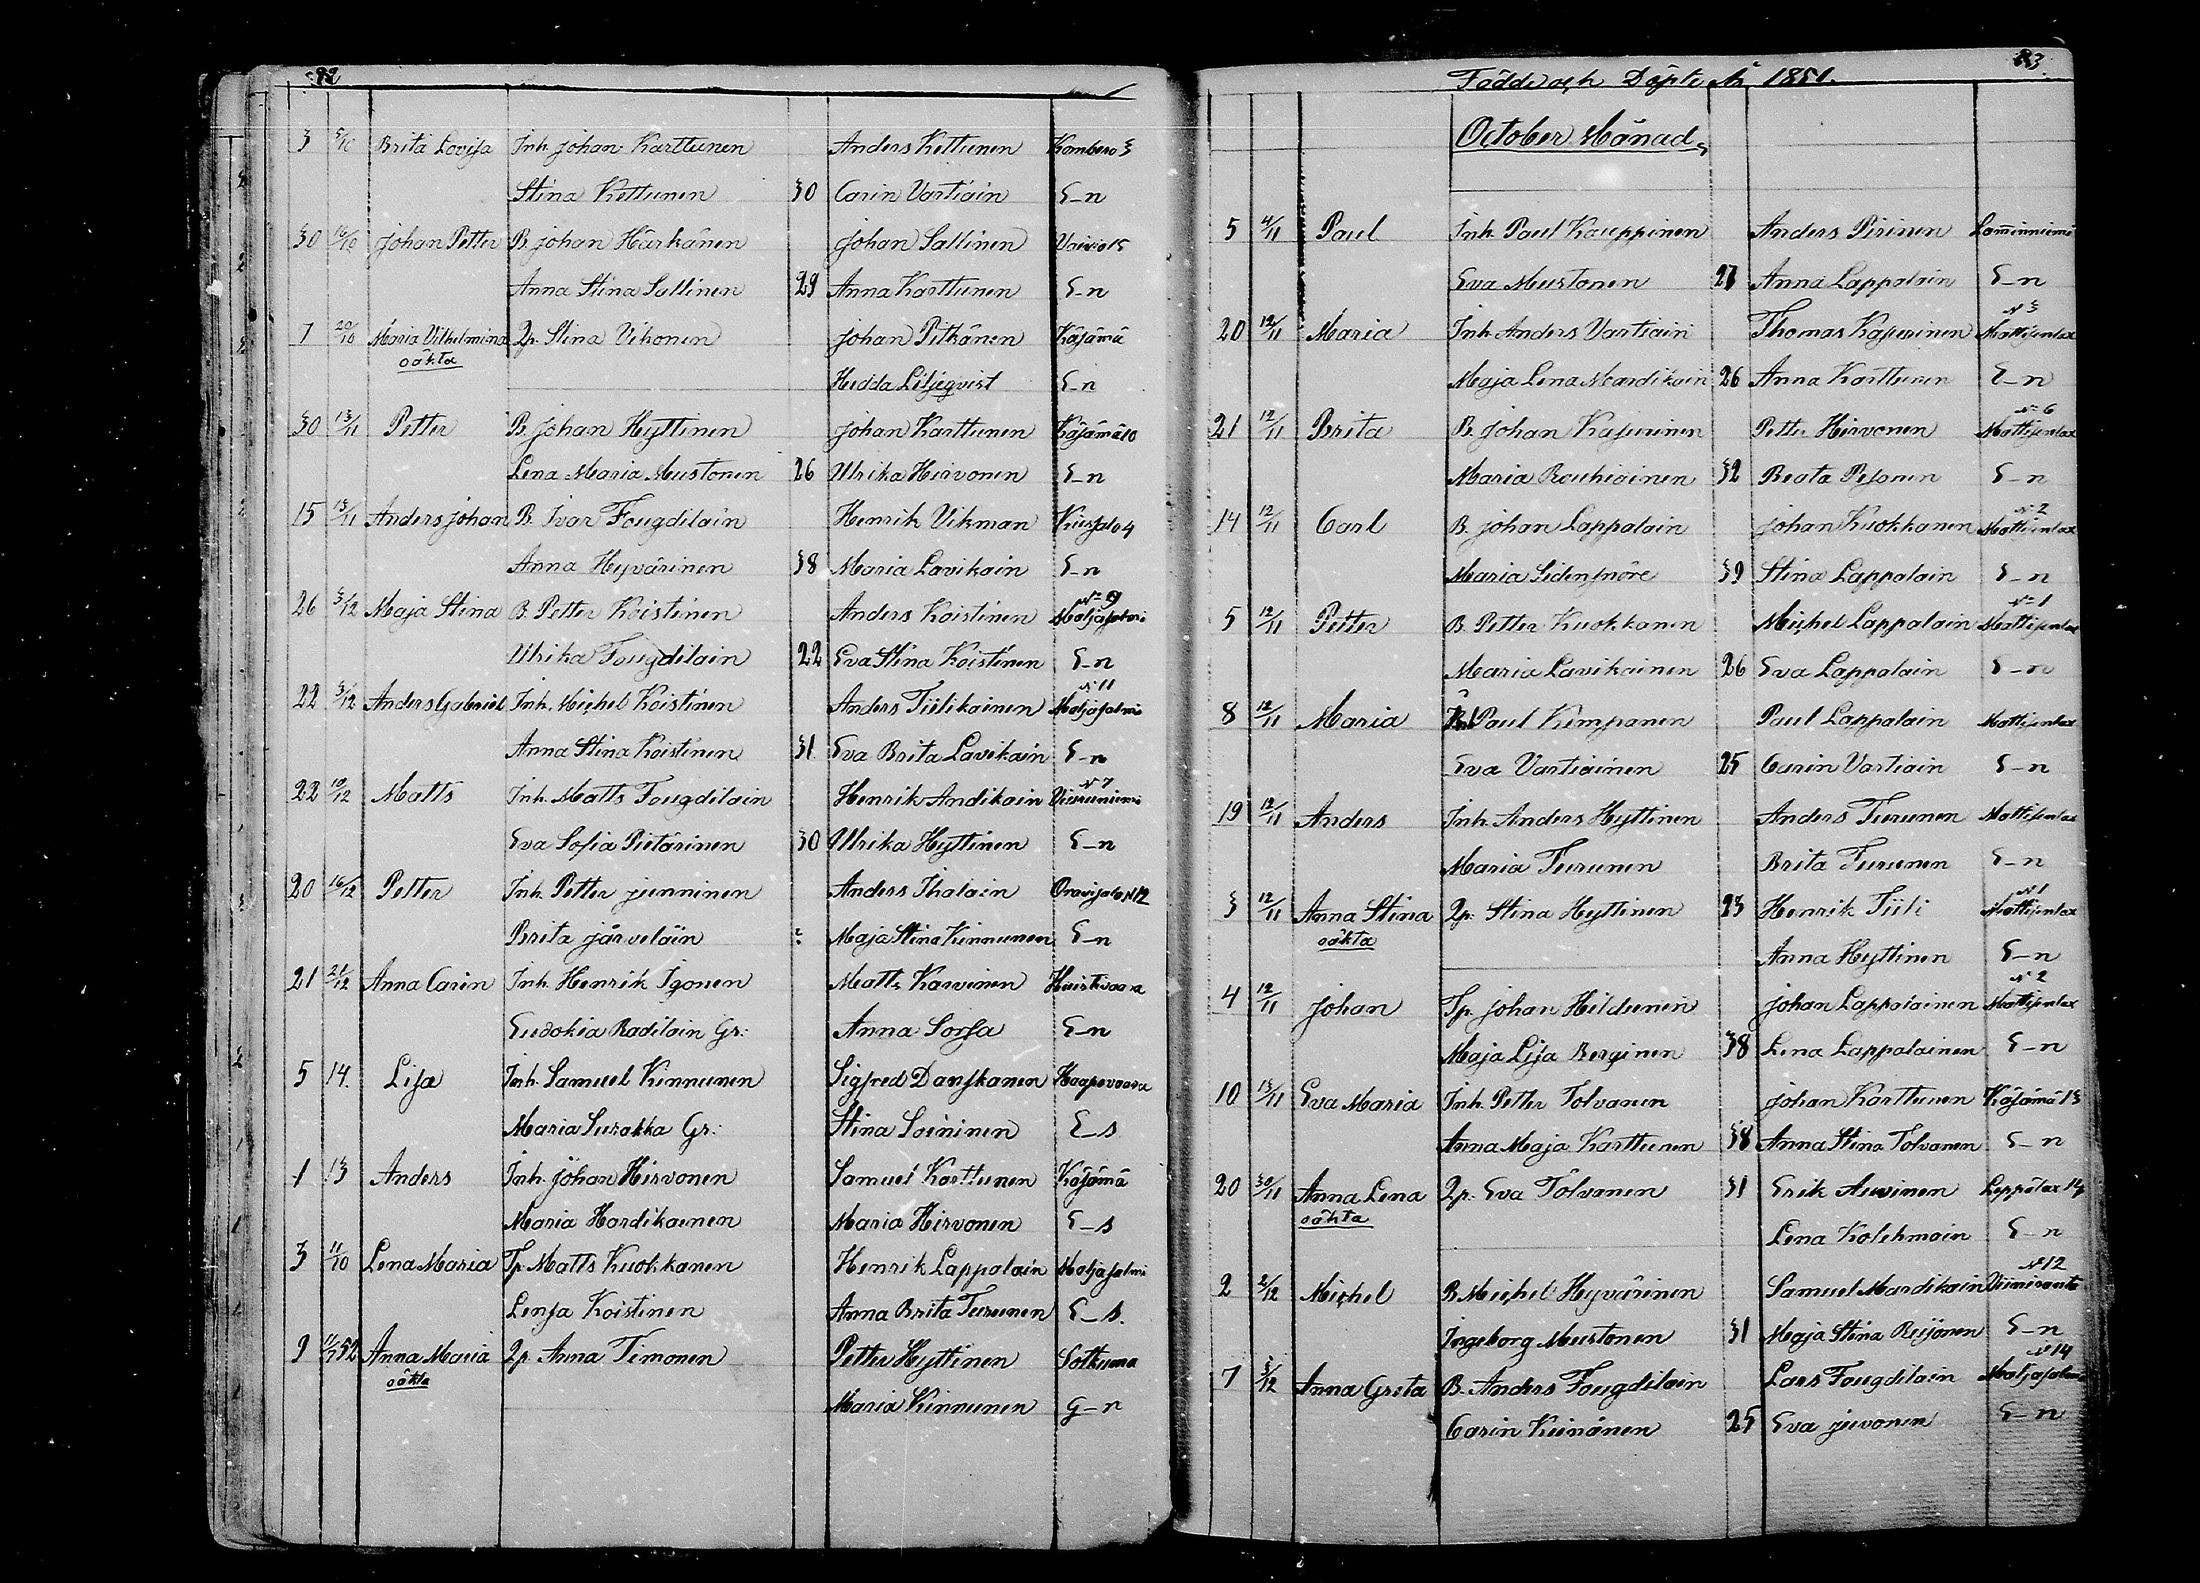 82
3 5/10 Brita Lovisa Inh. Johan Karttunen Anders Kettunen Kombero 3
Stina Kettunen 30 Carin Vartiain S-n
30 16/10 Johan Petter B. Johan Härkänen Johan Sallinen Vaivio 15
Anna Stina Sallinen 29 Anna Karttunen S-n
7 20/10 Maria Vilhelmina Qp. Stina Vihonen Johan Pitkänen Käsämä
oäkta Hedda Liljeqvist S-n
30 13/11 Petter B. Johan Hyttinen Johan Karttunen Käsämä 10
Lena Maria Mustonen 26 Ulrika Hirvonen S-n
15 13/11 Anders Johan B. Ivar Fougdilain Henrik Vikman Kuusjalo 4
Anna Hyvärinen 38 Maria Lavikain S-n
26 3/12 Maja Stina B. Petter Koistinen Anders Koistinen Maljasalmi
Ulrika Fougdilain 22 Eva Stina Koistinen S-n
N 11
22 3/12 Anders Gabriel Inh. Michel Koistinen Anders Tiilikainen Maljasalmi
Anna Stina Koistinen 31 Eva Brita Lavikain S-n
N 7
22 10/12 Matts Inh. Matts Fougdilain Henrik Andikain
Eva Sofia Pietärinen 30 Ulrika Hyttinen S-n
20 16/12 Petter Inh. Petter Junninen Anders Ihalain Oravisalo N 12
Brita Järveläin : Maja Stina Kinnunen S-n
21 21/12 Anna Carin Inh. Henrik Igonen Matts Karvinen
Eudokia Radilain Gr: Anna Sorsa S-n
5 14. Lisa Inh. Samuel Kinnunen Sigfred Danskanen Haapovaara
Maria Surakka Gr: Stina Soininen S-s
1 13 Anders Inh. Johan Hirvonen Samuel Karttunen Käsämä
Maria Hardikainen Maria Hirvonen S-s
3 11/10 Lena Maria Tp. Matts Kuokkanen Henrik Lappalain Maljasalmi
Lensa Koistinen Anna Brita Turunen S-s.
9 52 Anna Maria Qp. Anna Timonen Petter Hyttinen Sotkuma
oäkta Maria Kinnunen G-n
83
Födde och Döpte År 1851.
October Månad
5 4/11 Paul Inh. Paul Kauppinen Anders Pirinen Lamminniemi
Eva Mustonen 27 Anna Lappalain S-n
N 3
20 12/11 Maria Inh. Anders Vartiain Thomas Kasurinen Mattisenlax
Maja Lena Mardikain 26 Anna Karttunen S-n
N 6
21 12/11 Brita B. Johan Kasurinen Petter Hirvonen Mattisenlax
Maria Rouhiainen 32 Beata Pesonen S-n
N 2
14 12/11 Carl B. Johan Lappalain Johan Kuokkanen Mattisenlax
Maria Sidensnöre 39 Stina Lappalain S-n
N 1
5 12/11 Petter B. Petter Kuokkanen Michel Lappalain Mattisenlax
Maria Lavikainen 26 Eva Lappalain S-n
8 12/11 Maria Paul Kimpanen Paul Lappalain Mattisenlax
Eva Vartiainen 25 Carin Vartiain S-n
19 12/11 Anders Inh. Anders Hyttinen Anders Turunen Mattisenlax
Maria Turunen Brita Turunen S-n
N 1
3 12/11 Anna Stina Qp. Stina Hyttinen 23 Henrik Tiili Mattisenlax
oäkta Anna Hyttinen S-n
N 2
4 12/11 Johan Tp. Johan Hildunen Johan Lappalainen Mattisenlax
Maja Lisa Berginen 38 Lena Lappalainen S-n
10 13/11 Eva Maria Inh. Petter Tolvanen Johan Karttunen Käsämä 13
Anna Maja Karttunen 38 Anna Stina Tolvanen S-n
20 30/11 Anna Lena Qp. Eva Tolvanen 31 Erik Auvinen Leppälax 14
oäkta Lena Kolehmain S-n
N 12
2 2/12 Michel B. Michel Hyvärinen Samuel Mardikain Viinivanta
Ingeborg Mustonen 31 Maja Stina Reijonen S-n
N 14
7 3/12 Anna Greta B. Anders Fougdilain Lars Fougdilain Maljasalmi
Carin Keinänen 25 Eva Juvonen S-n